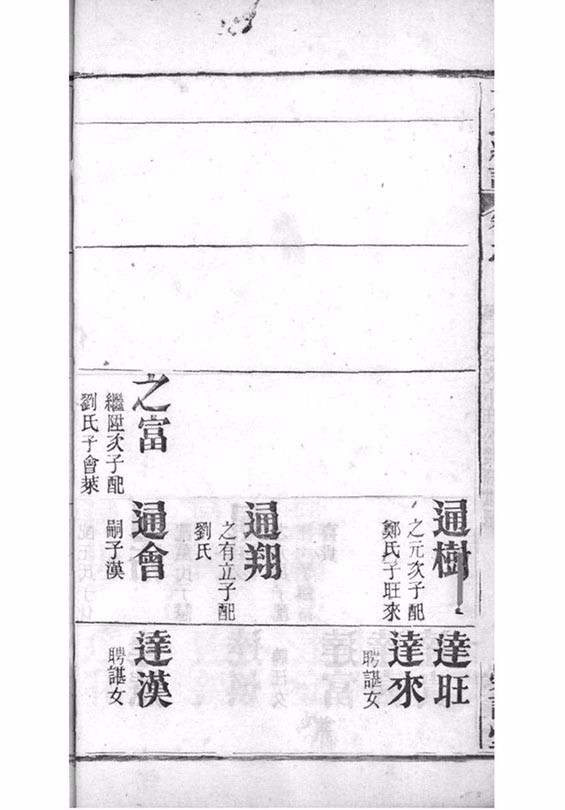 之富
繼陞次子配
劉氏子會葉
通樹
之元次子配
鄭氏子旺來
通翔
之有立子配
劉氏
通會
嗣子漢
達旺
達來
聘諶女
達漢
聘諶女